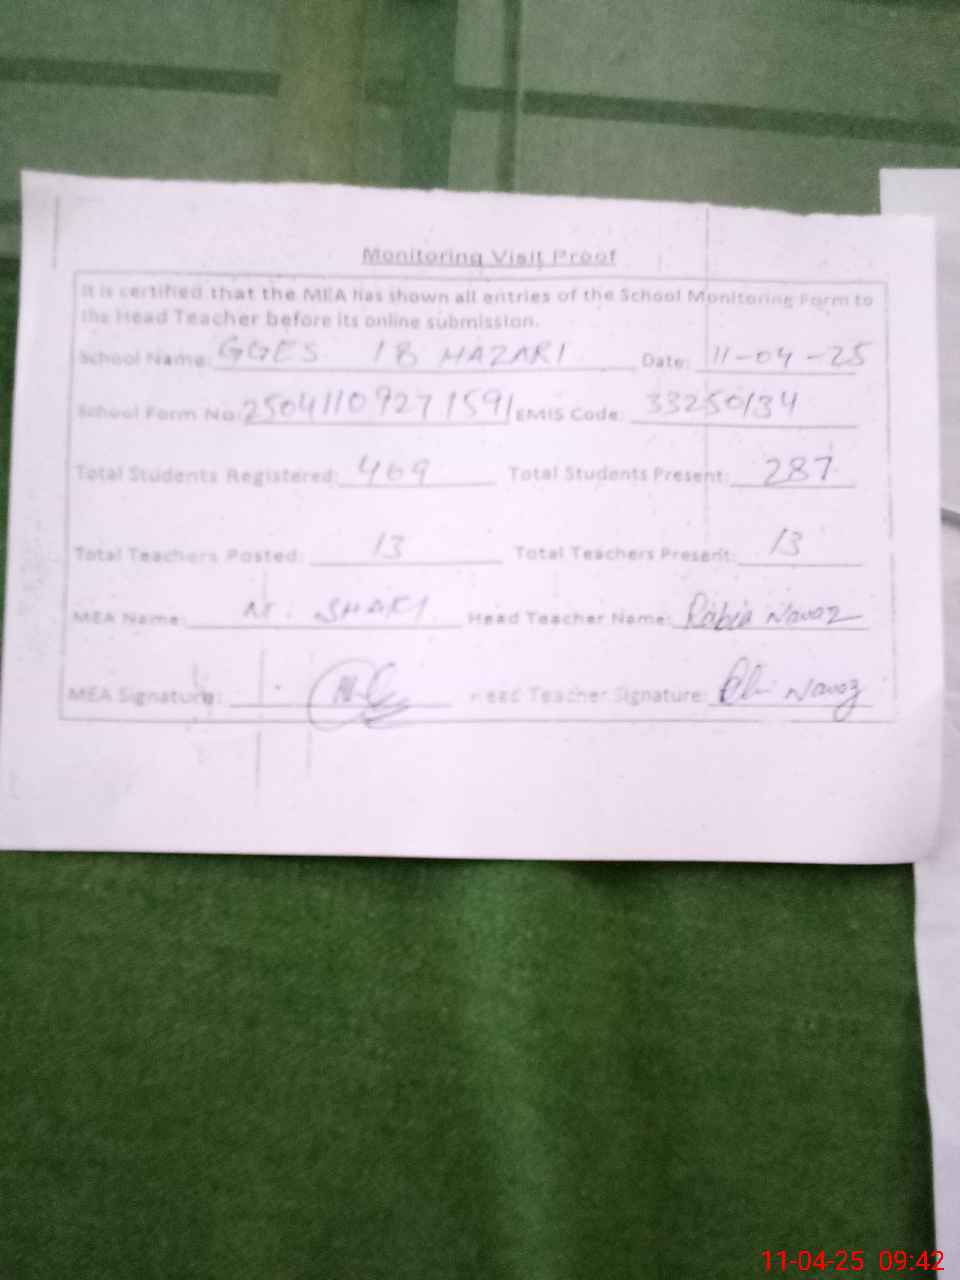 Monitoring Visit Proof
It is certified that the MEA has shown all entries of the School Monitoring Form to
the Head Teacher before its online submission.
School Name: GGES 18 HAZARI Date: 11-04-25
School Form No: 25041109271591 EMIS Code: 33250134
Total Students Registered: 469 Total Students Present: 287
Total Teachers Posted: 13 Total Teachers Present: 13
MEA Name: Head Teacher Name: Rabia Nawaz
MEA Signature: Head Teacher Signature: Nawaz
11-04-25 09:42